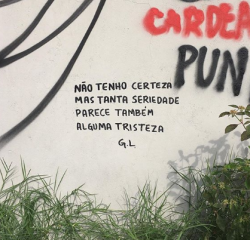 CARDEA
PUN
NÃO TENHO CERTEZA
MAS TANTA SERIEDADE
PARECE TAMBÉM
ALGUMA TRISTEZA
G.L